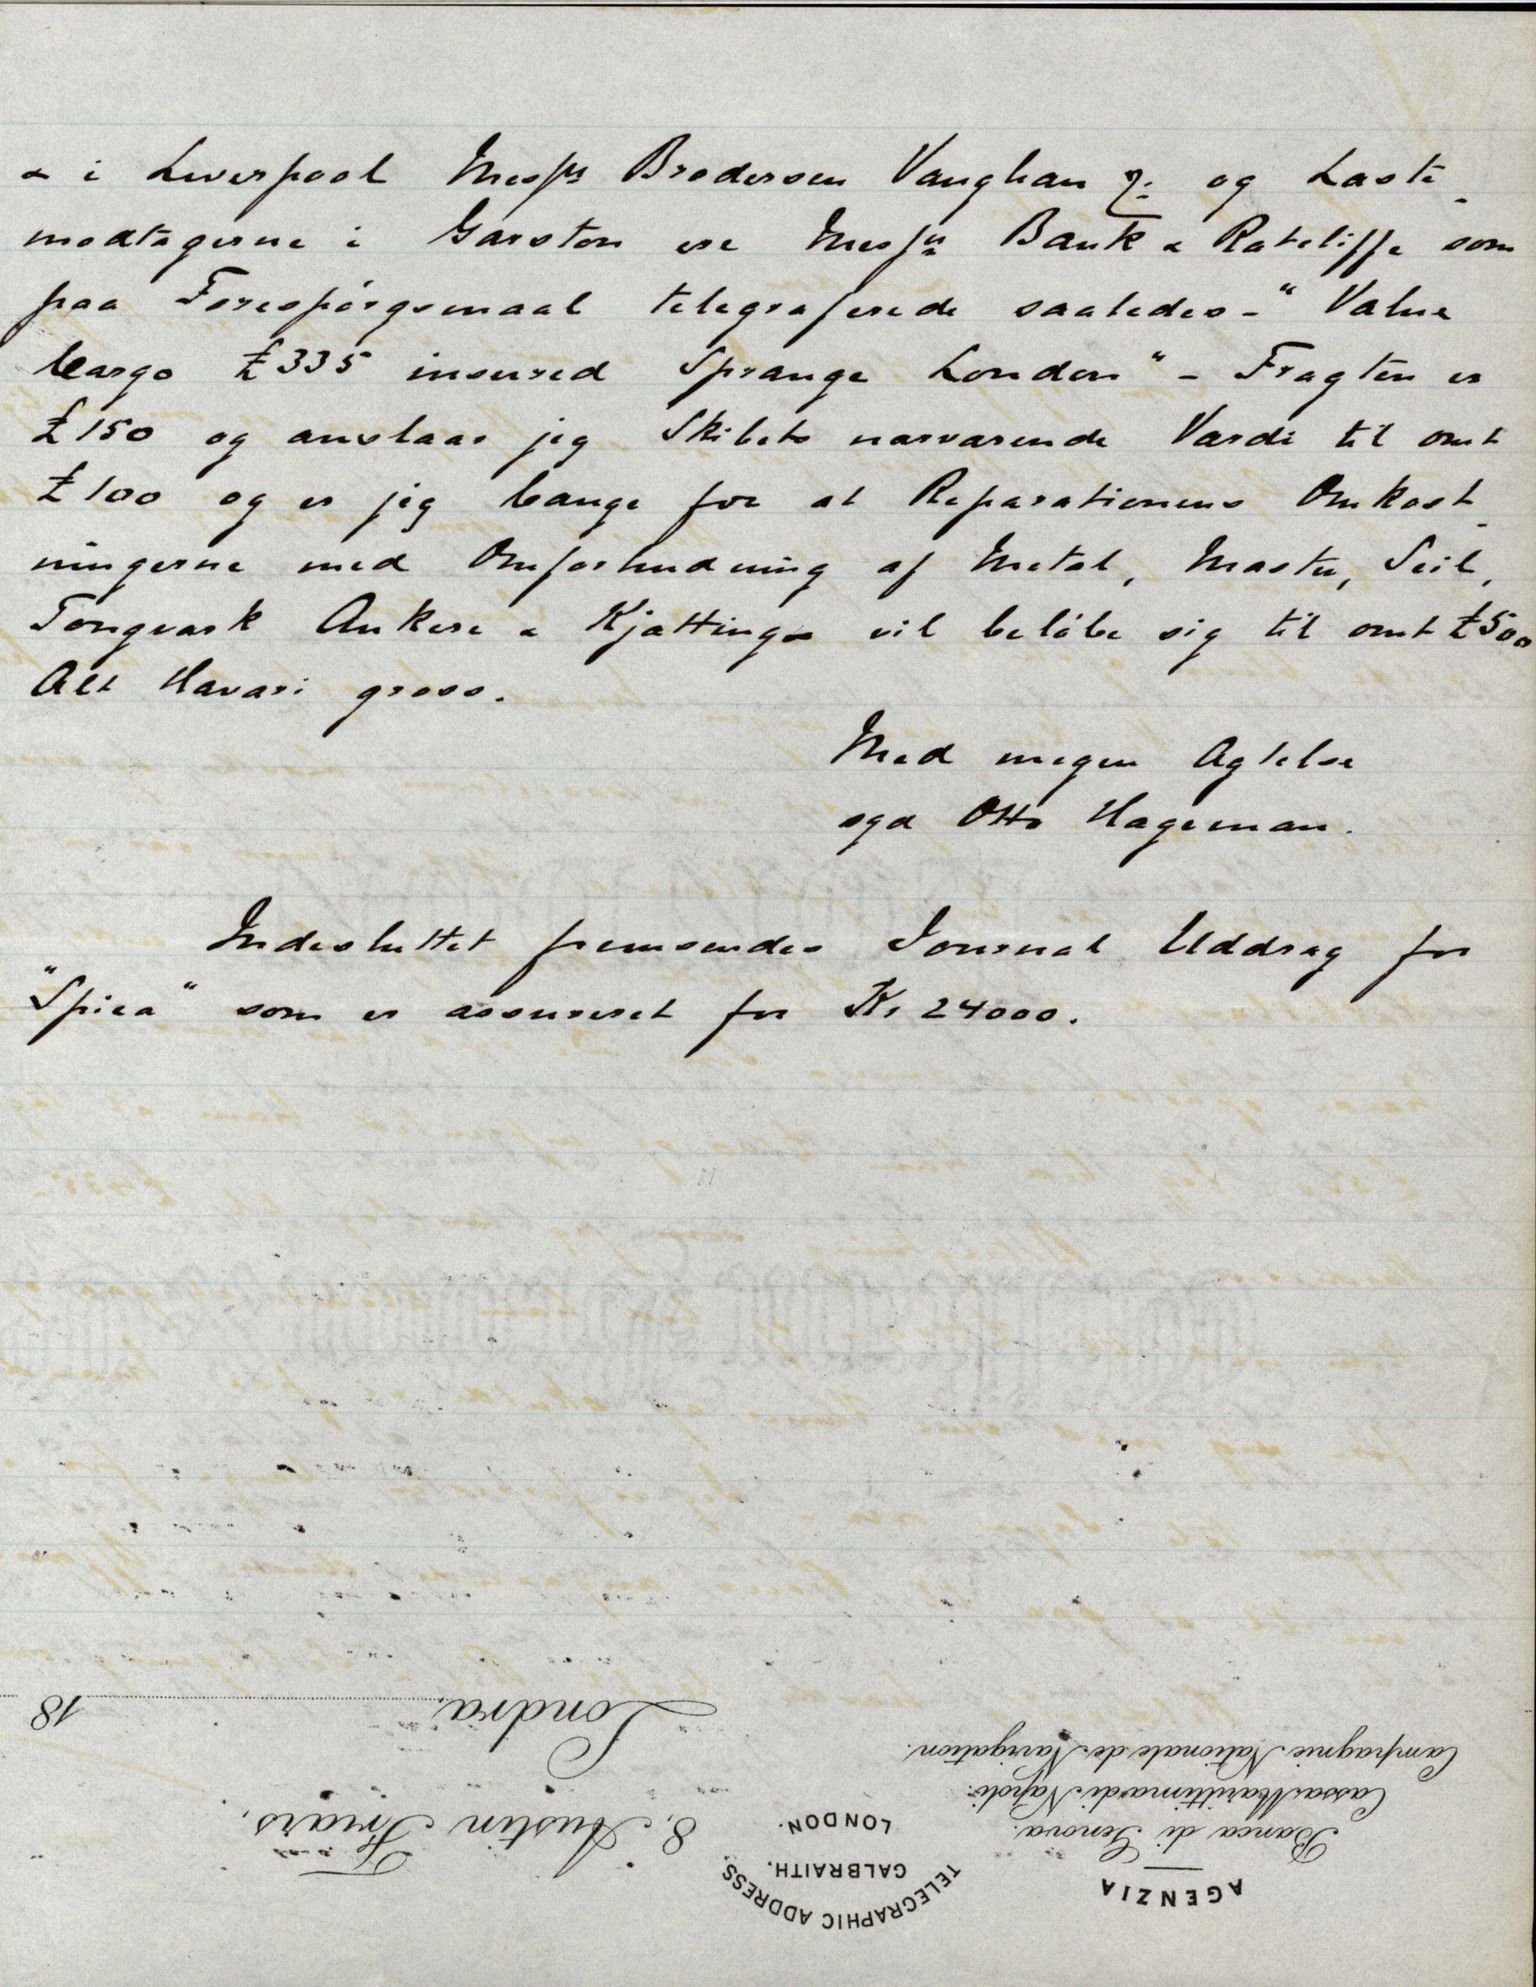 & i Liverpool Messrs Brodersen Vaughan & og Laste-
modtagerne i Garston ere Messrs Bank & Ratcliffe som
paa Forespörgsmaal telegraferede saaledes - "Value
Cargo £335 insured Sprange London" - Fragten er
£150 og anslaar jeg Skibets nærværende Værdi til omt
£100 og er jeg bange for at Reparationens Omkost-
ningerne med Omforhudning af Metal, Master, Seil,
Tougværk Ankere & Kjættinge vil belöbe sig til omt £500
Alt Havari gross.
Med megen Agtelse
sgd Otto Hageman.
Indesluttet fremsendes Journal Uddrag for
"Spica" som er assureret for Kr 24000.
AGENZIA
Banca di Genova.
Cassa Marittima di Napoli.
Compagnie Nationale de Navigation.
TELEGRAPHIC ADDRESS.
GALBRAITH.
LONDON.
8, Austin Friars,
Londra, 18